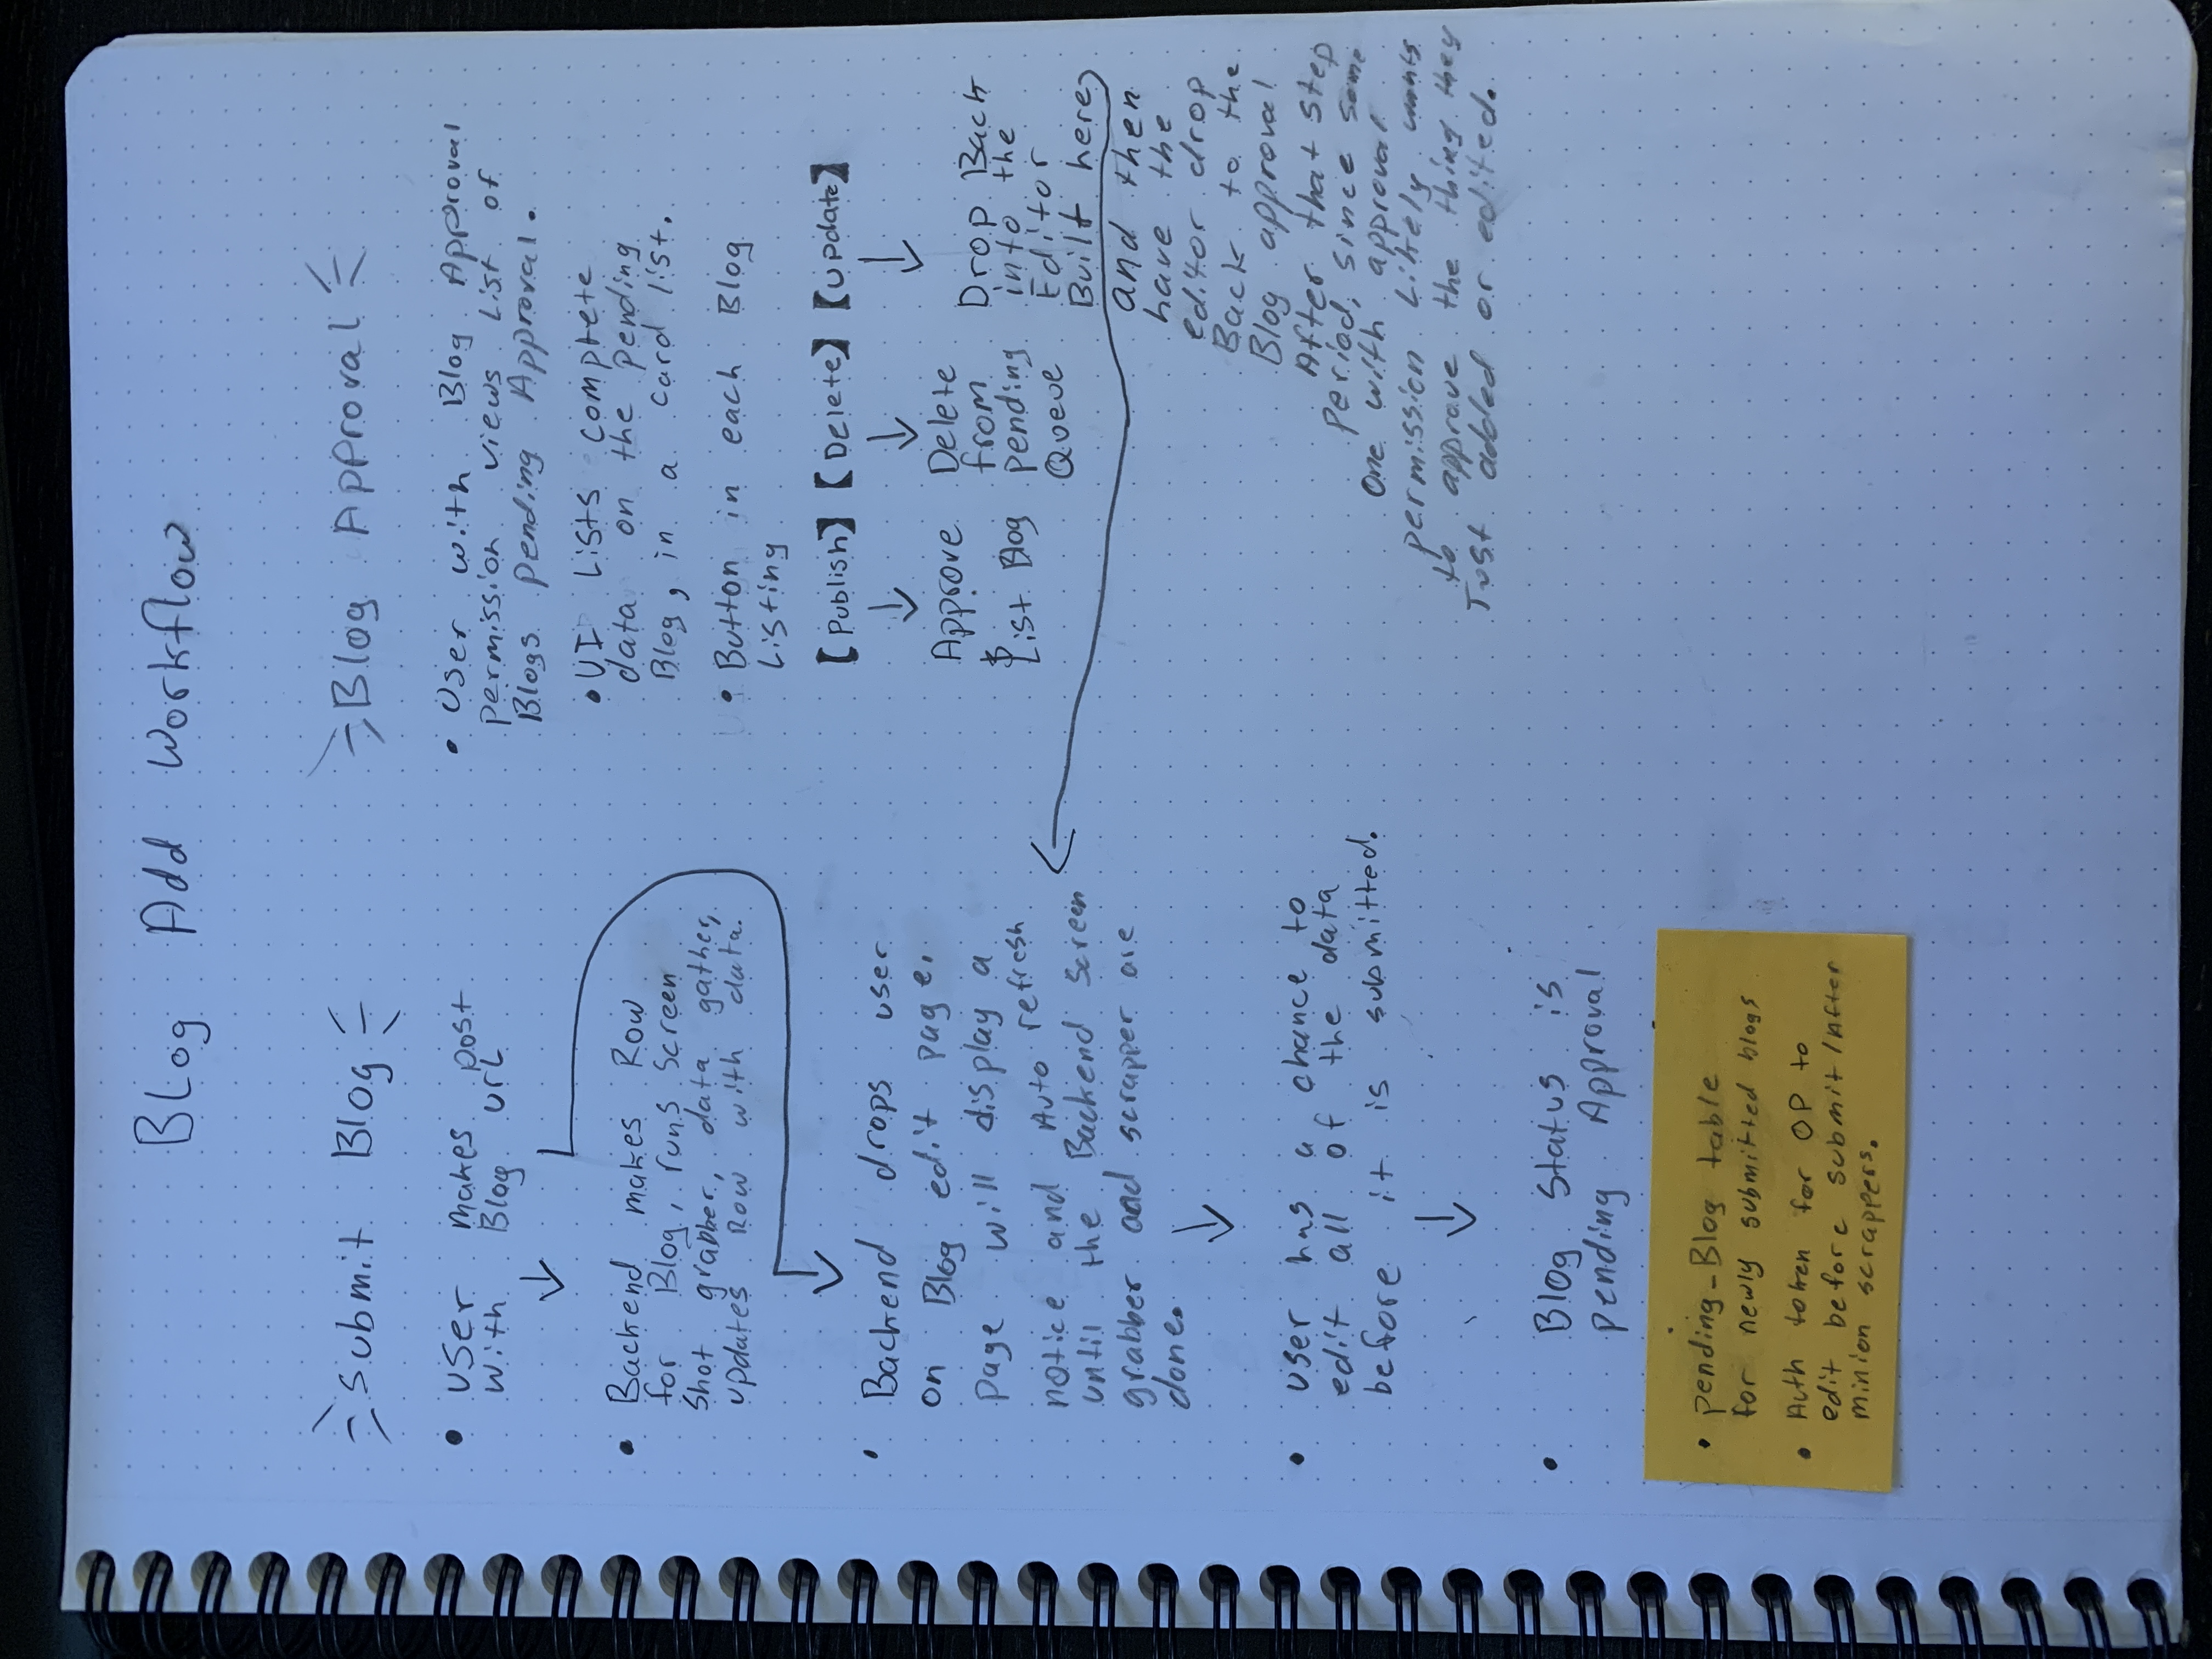 BLog Add Workflow
Submit Blog
• User makes post
with Blog url
• Backend makes Row
for Blog, runs Screen
shot grabber, data gather,
updates Row with data.
• Backend drops user
on Blog edit page.
page will display a
notice and Auto refresh
until the Backend Screen
grabber and scraper are
done.
• User has a chance to
edit all of the data
before it is submitted.
• Blog Status is
pending Approval
• pending-Blog table
for newly submitted blogs
• Auth token for OP to
edit before submit/After
minion scrappers.
Blog Approval
• User with Blog Approval
permission views List of
Blogs pending Approval.
• UI Lists complete
data on the pending
Blog, in a card list.
• Button in each Blog
Listing
[Publish] [Delete] [Update]
Approve
&
List Blog
Delete
from
pending
Queue
Drop Back
into the
Editor
Built here
and then
have the
editor drop
Back to the
Blog approval
After that step
Period, since some
one with approval
permission Likely wants
to approve the thing they
Just added or edited.